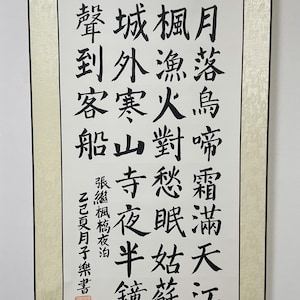 月落烏啼霜滿天江
楓漁火對愁眠姑蘇
城外寒山寺夜半鐘
聲到客船
張繼楓橋夜泊
乙巳夏月子樂書